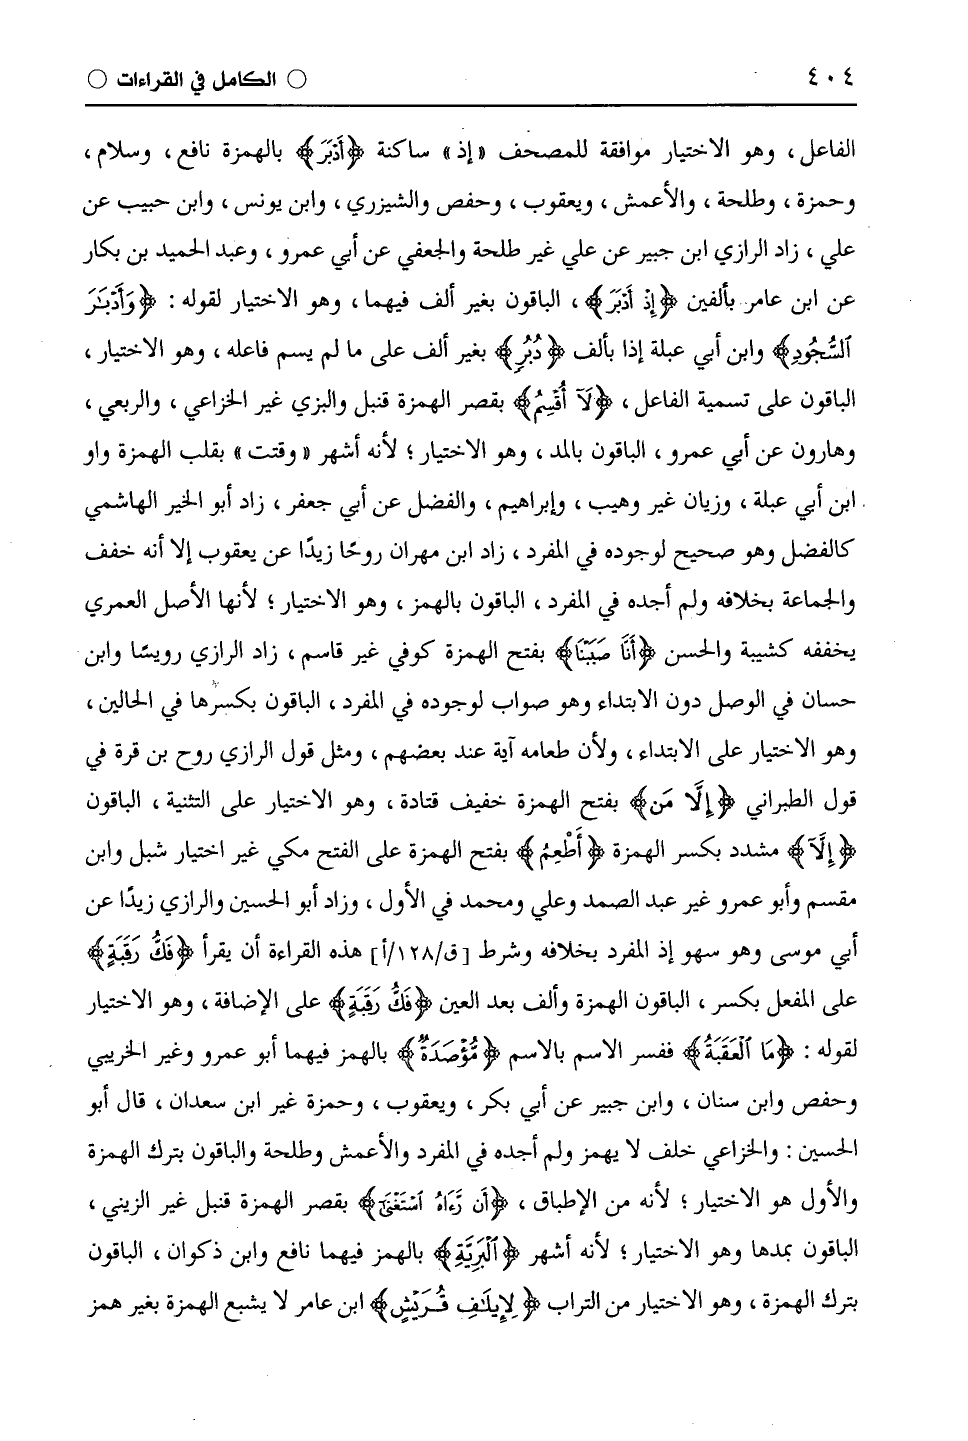 ٤٠٤ ○ الكامل في القراءات ○
الفاعل ، وهو الاختيار موافقة للمصحف «إذ» ساكنة ﴿أَدْبَرَ﴾ بالهمزة نافع ، وسلام ،
وحمزة ، وطلحة ، والأعمش ، ويعقوب ، وحفص والشيزري ، وابن يونس ، وابن حبيب عن
علي ، زاد الرازي ابن جبير عن علي غير طلحة والجعفي عن أبي عمرو ، وعبد الحميد بن بكار
عن ابن عامر بألفين ﴿إِذْ أَدْبَرَ﴾ ، الباقون بغير ألف فيهما ، وهو الاختيار لقوله : ﴿وَأَدْبَٰرَ
ٱلسُّجُودِ﴾ وابن أبي عبلة إذا بألف ﴿دُبُرٍ﴾ بغير ألف على ما لم يسم فاعله ، وهو الاختيار ،
الباقون على تسمية الفاعل ، ﴿لَآ أُقْسِمُ﴾ بقصر الهمزة قنبل والبزي غير الخزاعي ، والربعي ،
وهارون عن أبي عمرو ، الباقون بالمد ، وهو الاختيار ؛ لأنه أشهر «وقتت» بقلب الهمزة واو
ابن أبي عبلة ، وزيان غير وهيب ، وإبراهيم ، والفضل عن أبي جعفر ، زاد أبو الخير الهاشمي
كالفضل وهو صحيح لوجوده في المفرد ، زاد ابن مهران روحًا زيدًا عن يعقوب إلا أنه خفف
والجماعة بخلافه ولم أجده في المفرد ، الباقون بالهمز ، وهو الاختيار ؛ لأنها الأصل العمري
يخففه كشيبة والحسن ﴿أَنَّا صَبَبْنَا﴾ بفتح الهمزة كوفي غير قاسم ، زاد الرازي رويسًا وابن
حسان في الوصل دون الابتداء وهو صواب لوجوده في المفرد ، الباقون بكسرها في الحالين ،
وهو الاختيار على الابتداء ، ولأن طعامه آية عند بعضهم ، ومثل قول الرازي روح بن قرة في
قول الطبراني ﴿إِلَّا مَن﴾ بفتح الهمزة خفيف قتادة ، وهو الاختيار على التثنية ، الباقون
﴿إِلَّآ﴾ مشدد بكسر الهمزة ﴿أَطْعِمُ﴾ بفتح الهمزة على الفتح مكي غير اختيار شبل وابن
مقسم وأبو عمرو غير عبد الصمد وعلي ومحمد في الأول ، وزاد أبو الحسين والرازي زيدًا عن
أبي موسى وهو سهو إذ المفرد بخلافه وشرط [ق/١٢٨/أ] هذه القراءة أن يقرأ ﴿فَكُّ رَقَبَةٍ﴾
على المفعل بكسر ، الباقون الهمزة وألف بعد العين ﴿فَكُّ رَقَبَةٍ﴾ على الإضافة ، وهو الاختيار
لقوله : ﴿مَا ٱلْعَقَبَةُ﴾ ففسر الاسم بالاسم ﴿مُّؤْصَدَةٌ﴾ بالهمز فيهما أبو عمرو وغير الخريبي
وحفص وابن سنان ، وابن جبير عن أبي بكر ، ويعقوب ، وحمزة غير ابن سعدان ، قال أبو
الحسين : والخزاعي خلف لا يهمز ولم أجده في المفرد والأعمش وطلحة والباقون بترك الهمزة
والأول هو الاختيار ؛ لأنه من الإطباق ، ﴿أَن رَّءَاهُ ٱسْتَغْنَىٰٓ﴾ بقصر الهمزة قنبل غير الزيني ،
الباقون بمدها وهو الاختيار ؛ لأنه أشهر ﴿ٱلْبَرِيَّةِ﴾ بالهمز فيهما نافع وابن ذكوان ، الباقون
بترك الهمزة ، وهو الاختيار من التراب ﴿لِإِيلَٰفِ قُرَيْشٍ﴾ ابن عامر لا يشبع الهمزة بغير همز